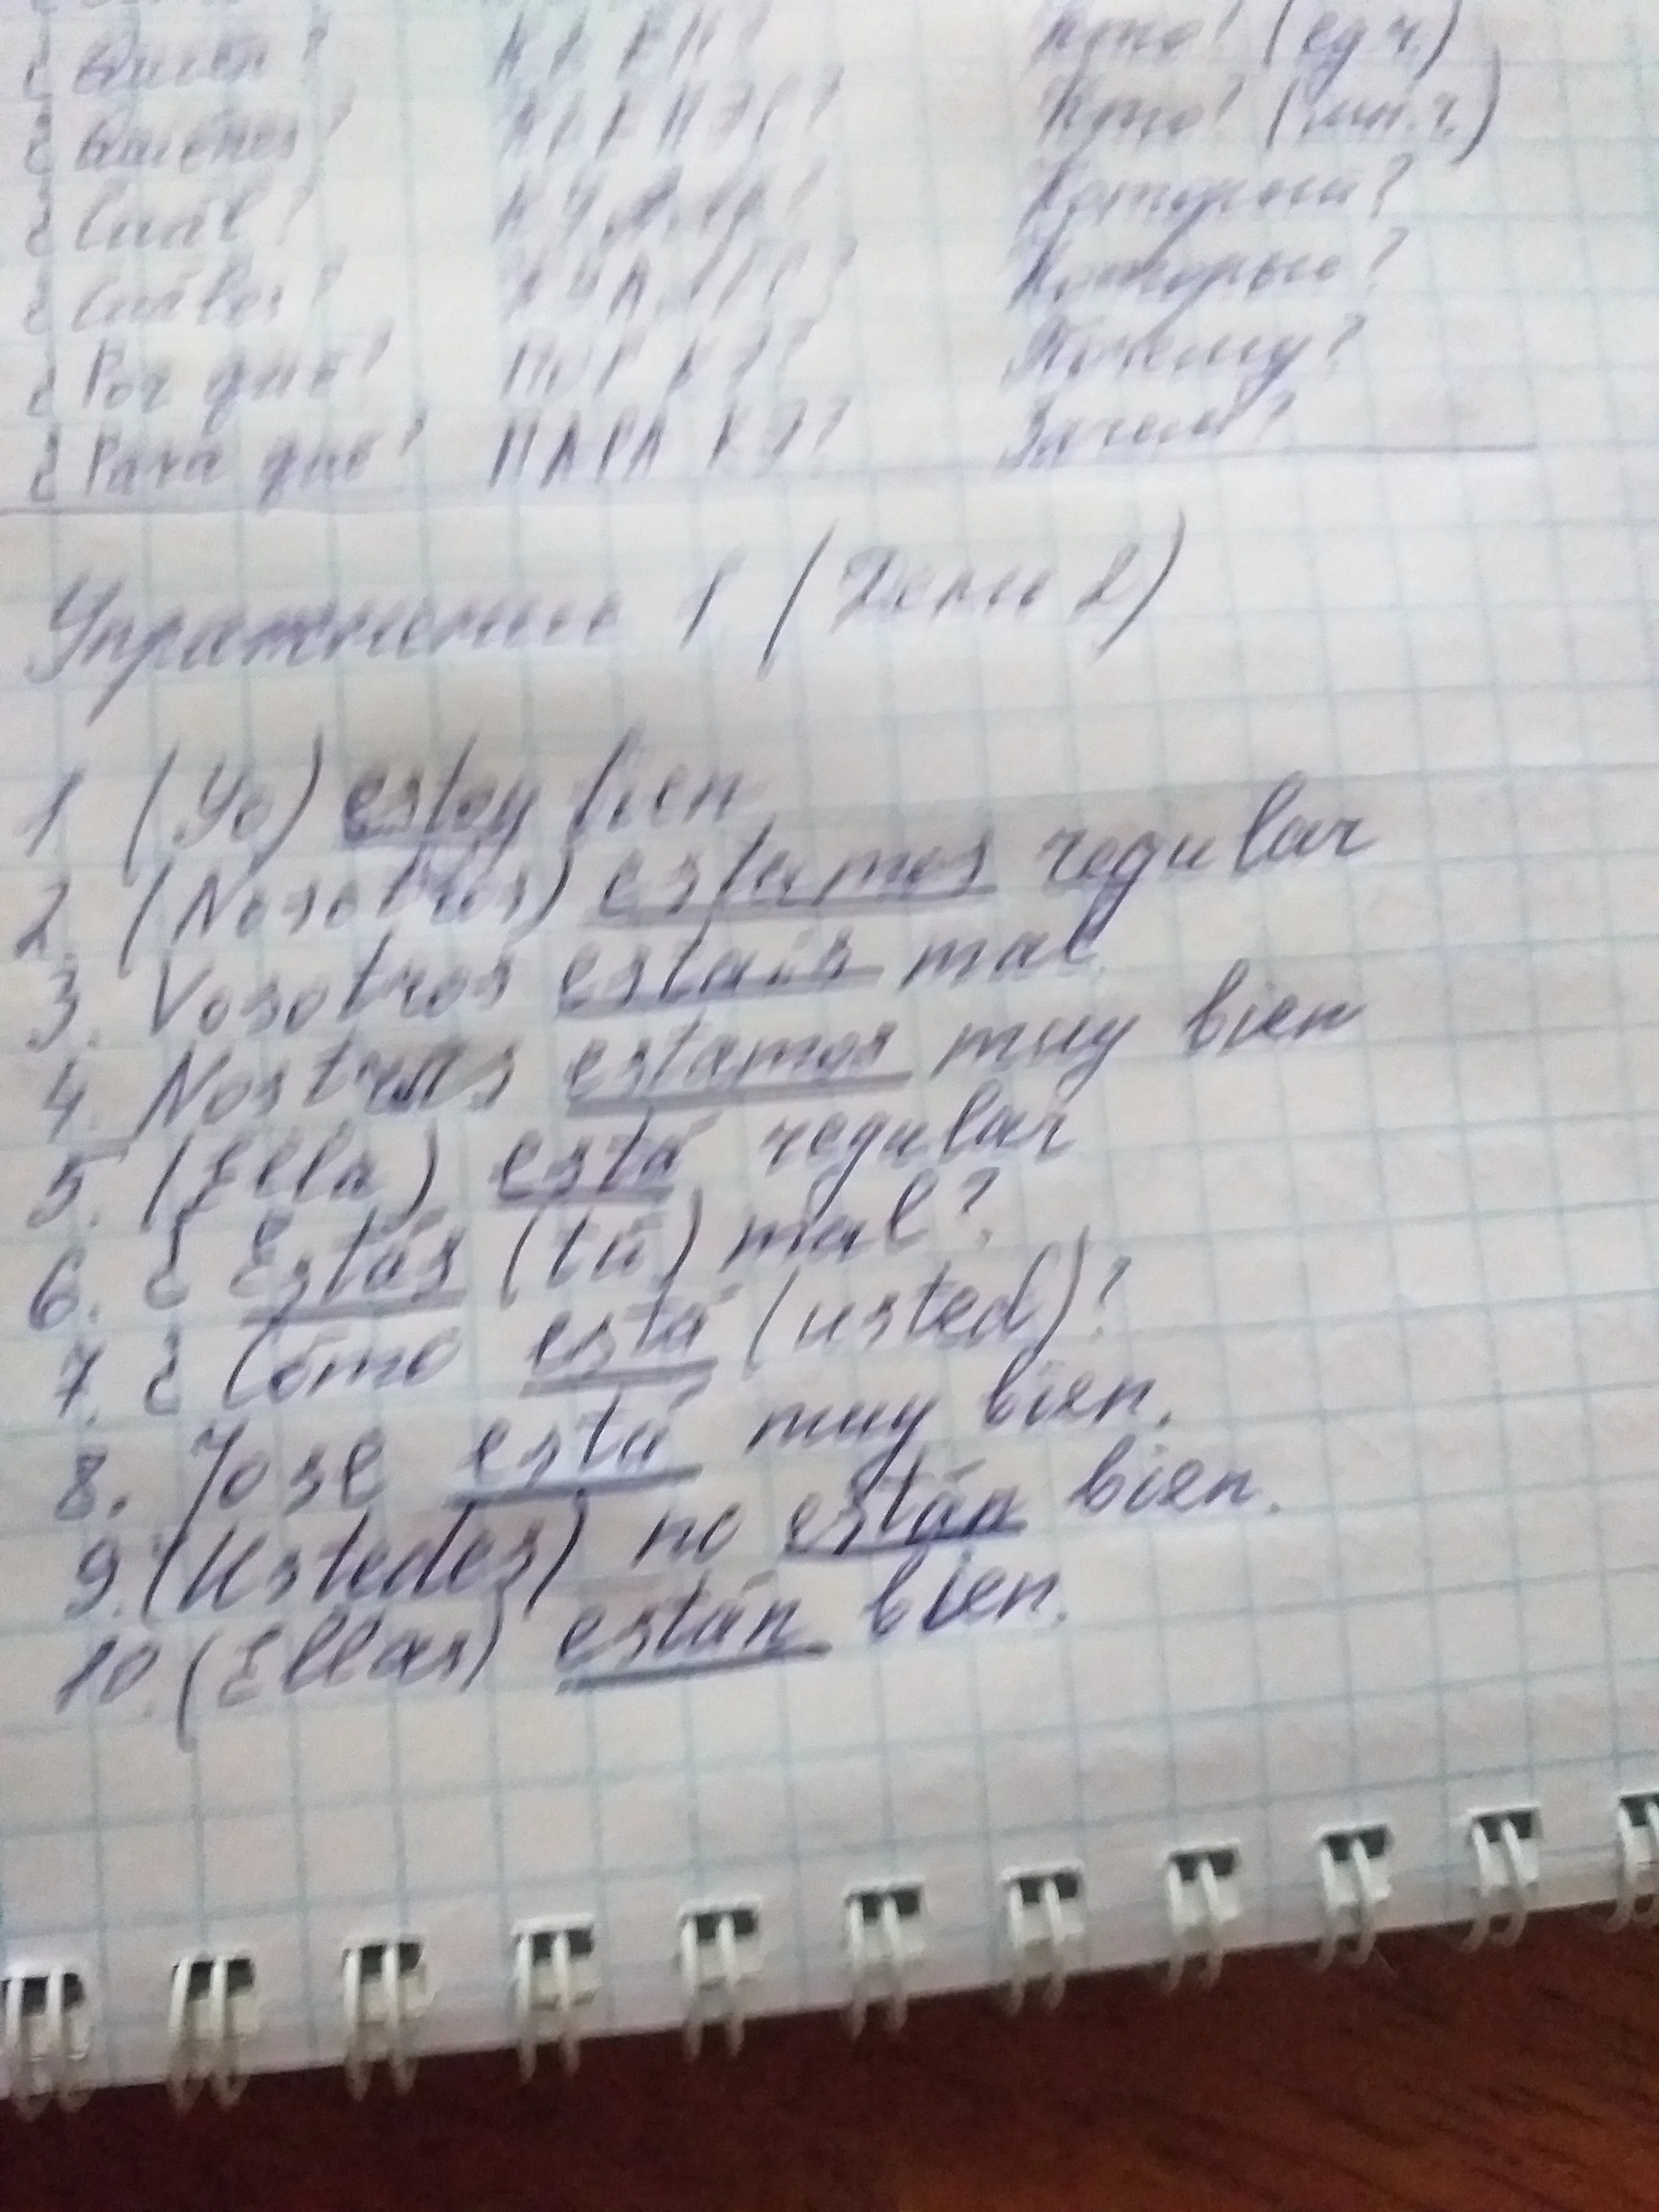 ¿Quién? КЬЕН? Кто? (ед.ч.)
¿Quiénes? КЬЕНЭС? Кто? (мн.ч.)
¿Cuál? КУАЛЬ? Который?
¿Cuáles? КУАЛЕС? Которые?
¿Por qué? ПОР КЭ? Почему?
¿Para qué? ПАРА КЭ? Зачем?
Упражнение 1 (День 2)
1 (Yo) estoy bien
2. (Nosotros) estamos regular
3. Vosotros estáis mal
4. Nostras estamos muy bien
5. (Ella) está regular
6. ¿Estás (tú) mal?
7. ¿Cómo está (usted)?
8. Jose está muy bien.
9. (Ustedes) no están bien.
10. (Ellas) están bien.